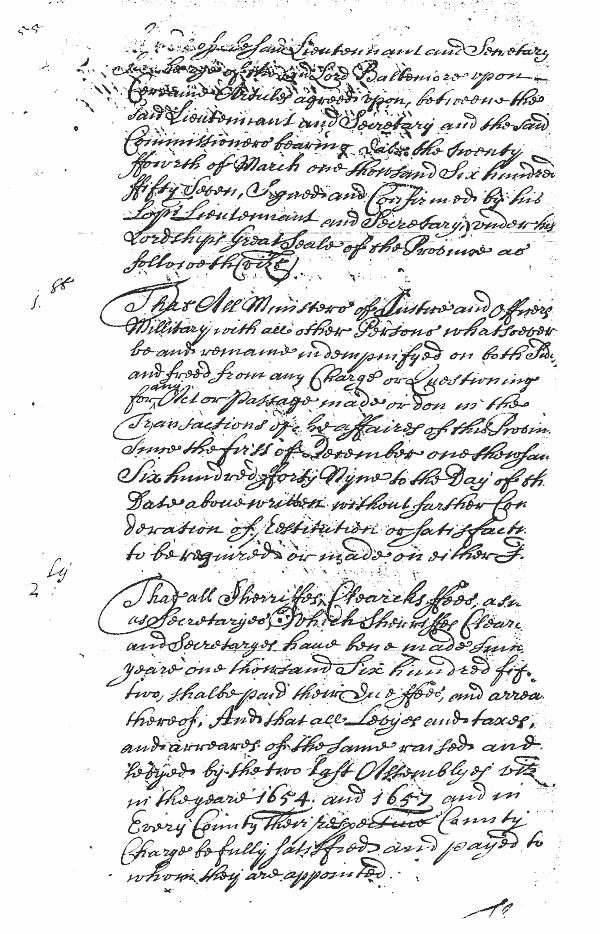 55
of the said Lieutennant and Secretary
of the said Lord Baltemore upon
Certaine Articles agreed upon, betweene the
said Lieutennant and Secretary and the said
Commissioners bearing date the twenty
ffowrth of March one thowsand Six hundred
ffifty Seven, Signed and Confirmed by his
Lopps Lieutennant and Secretary, vnder his
Lordships Great Seale of the Province as
followeth (vizt)
1. st
That All Ministers of Justice and Officers
Millitary with all other Persons whatsoever
be and remaine indempnifyed on both Sid
and freed from any Charge or Questioning
for any Act or Passage made or don in the
Transactions of the affaires of this Provin
Since the first of December one thowsan
Six hundred forty Nyne to the Day of th
Date aboue written without farther Con
deration of Restitution or satisfacti
to be required or made on either
2 ly
That all Sherriffes, Clearcks ffees, as
as Secretaryes which Sherriffes Clear
and Secretaryes haue bene made Sinc
yeare one thowsand Six hundred fif
two, shalbe paid their Due ffees, and arrea
thereof, And that all Levyes and taxes,
and arreares of the same raised and
Levyed by the two last Assemblyes vizt
in the yeare 1654. and 1657 and in
Every County their respective County
Charge be fully satisfied and payed to
whom they are appointed.